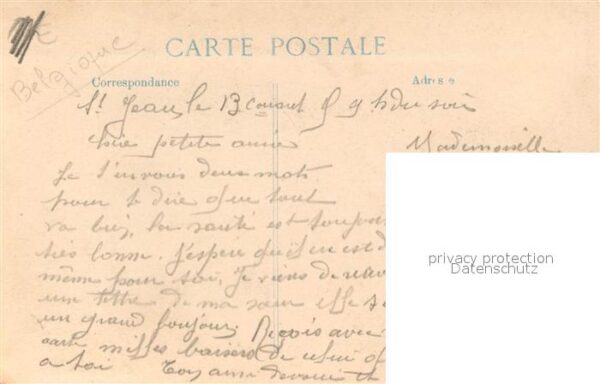 Belgique
CARTE POSTALE
Correspondance
Adresse
St Jean, le 13 courant 9 h du soir
Mademoiselle
Chère petite amie
Je t'envoie deux mots
pour te dire que tout
va bien, la santé est toujours
très bonne. J'espère qu'il en est de
même pour toi, Je viens de
une lettre de ma sœur elle
un grand bonjour. Reçois avec
carte milles baisers de celui
a toi Ton ami
privacy protection
Datenschutz